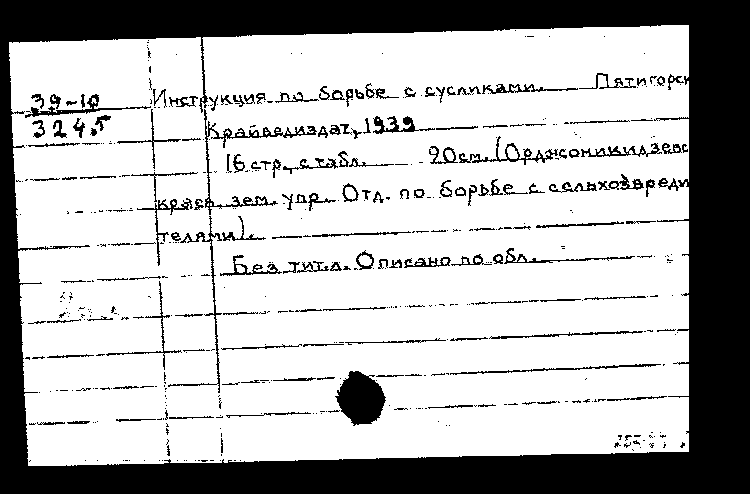 39-10
3245
Инструкция по борьбе с сусликами. Пятигорск
Крайведиздат, 1939
16 стр., с табл. 20см. (Орджоникидзевс
краев. зем. упр. Отд. по борьбе с сельхозвреди
телями).
Без тит.л. Описано по обл.